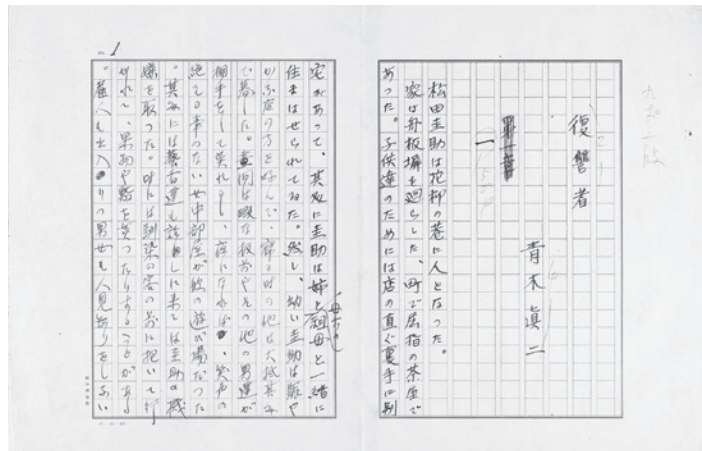 復讐者
青木眞二
一
松田圭助は花柳の巷に人となった。
家は舟板塀を廻らした、町で屈指の茶屋で
あった。子供達のためには店の直ぐ裏手に別
宅があって、其処に圭助は姉と祖母と一緒に
住まはせられてゐた。然し、幼い圭助は賑や
かな店の方を好んで、寝る時の他は大抵其処
で暮した。昼間は暇な板前やその他の男達が
相手をして呉れるし、夜になれば、笑声の
絶える事のない女中部屋が彼の遊び場だった
。其処には藝者達も話しに来ては圭助の機
嫌を取った。時には馴染の客の前に抱いて行
かれて、果物や鮨を貰ったりすることがある
。雇人も出入りの男女も人見知りをしない
1